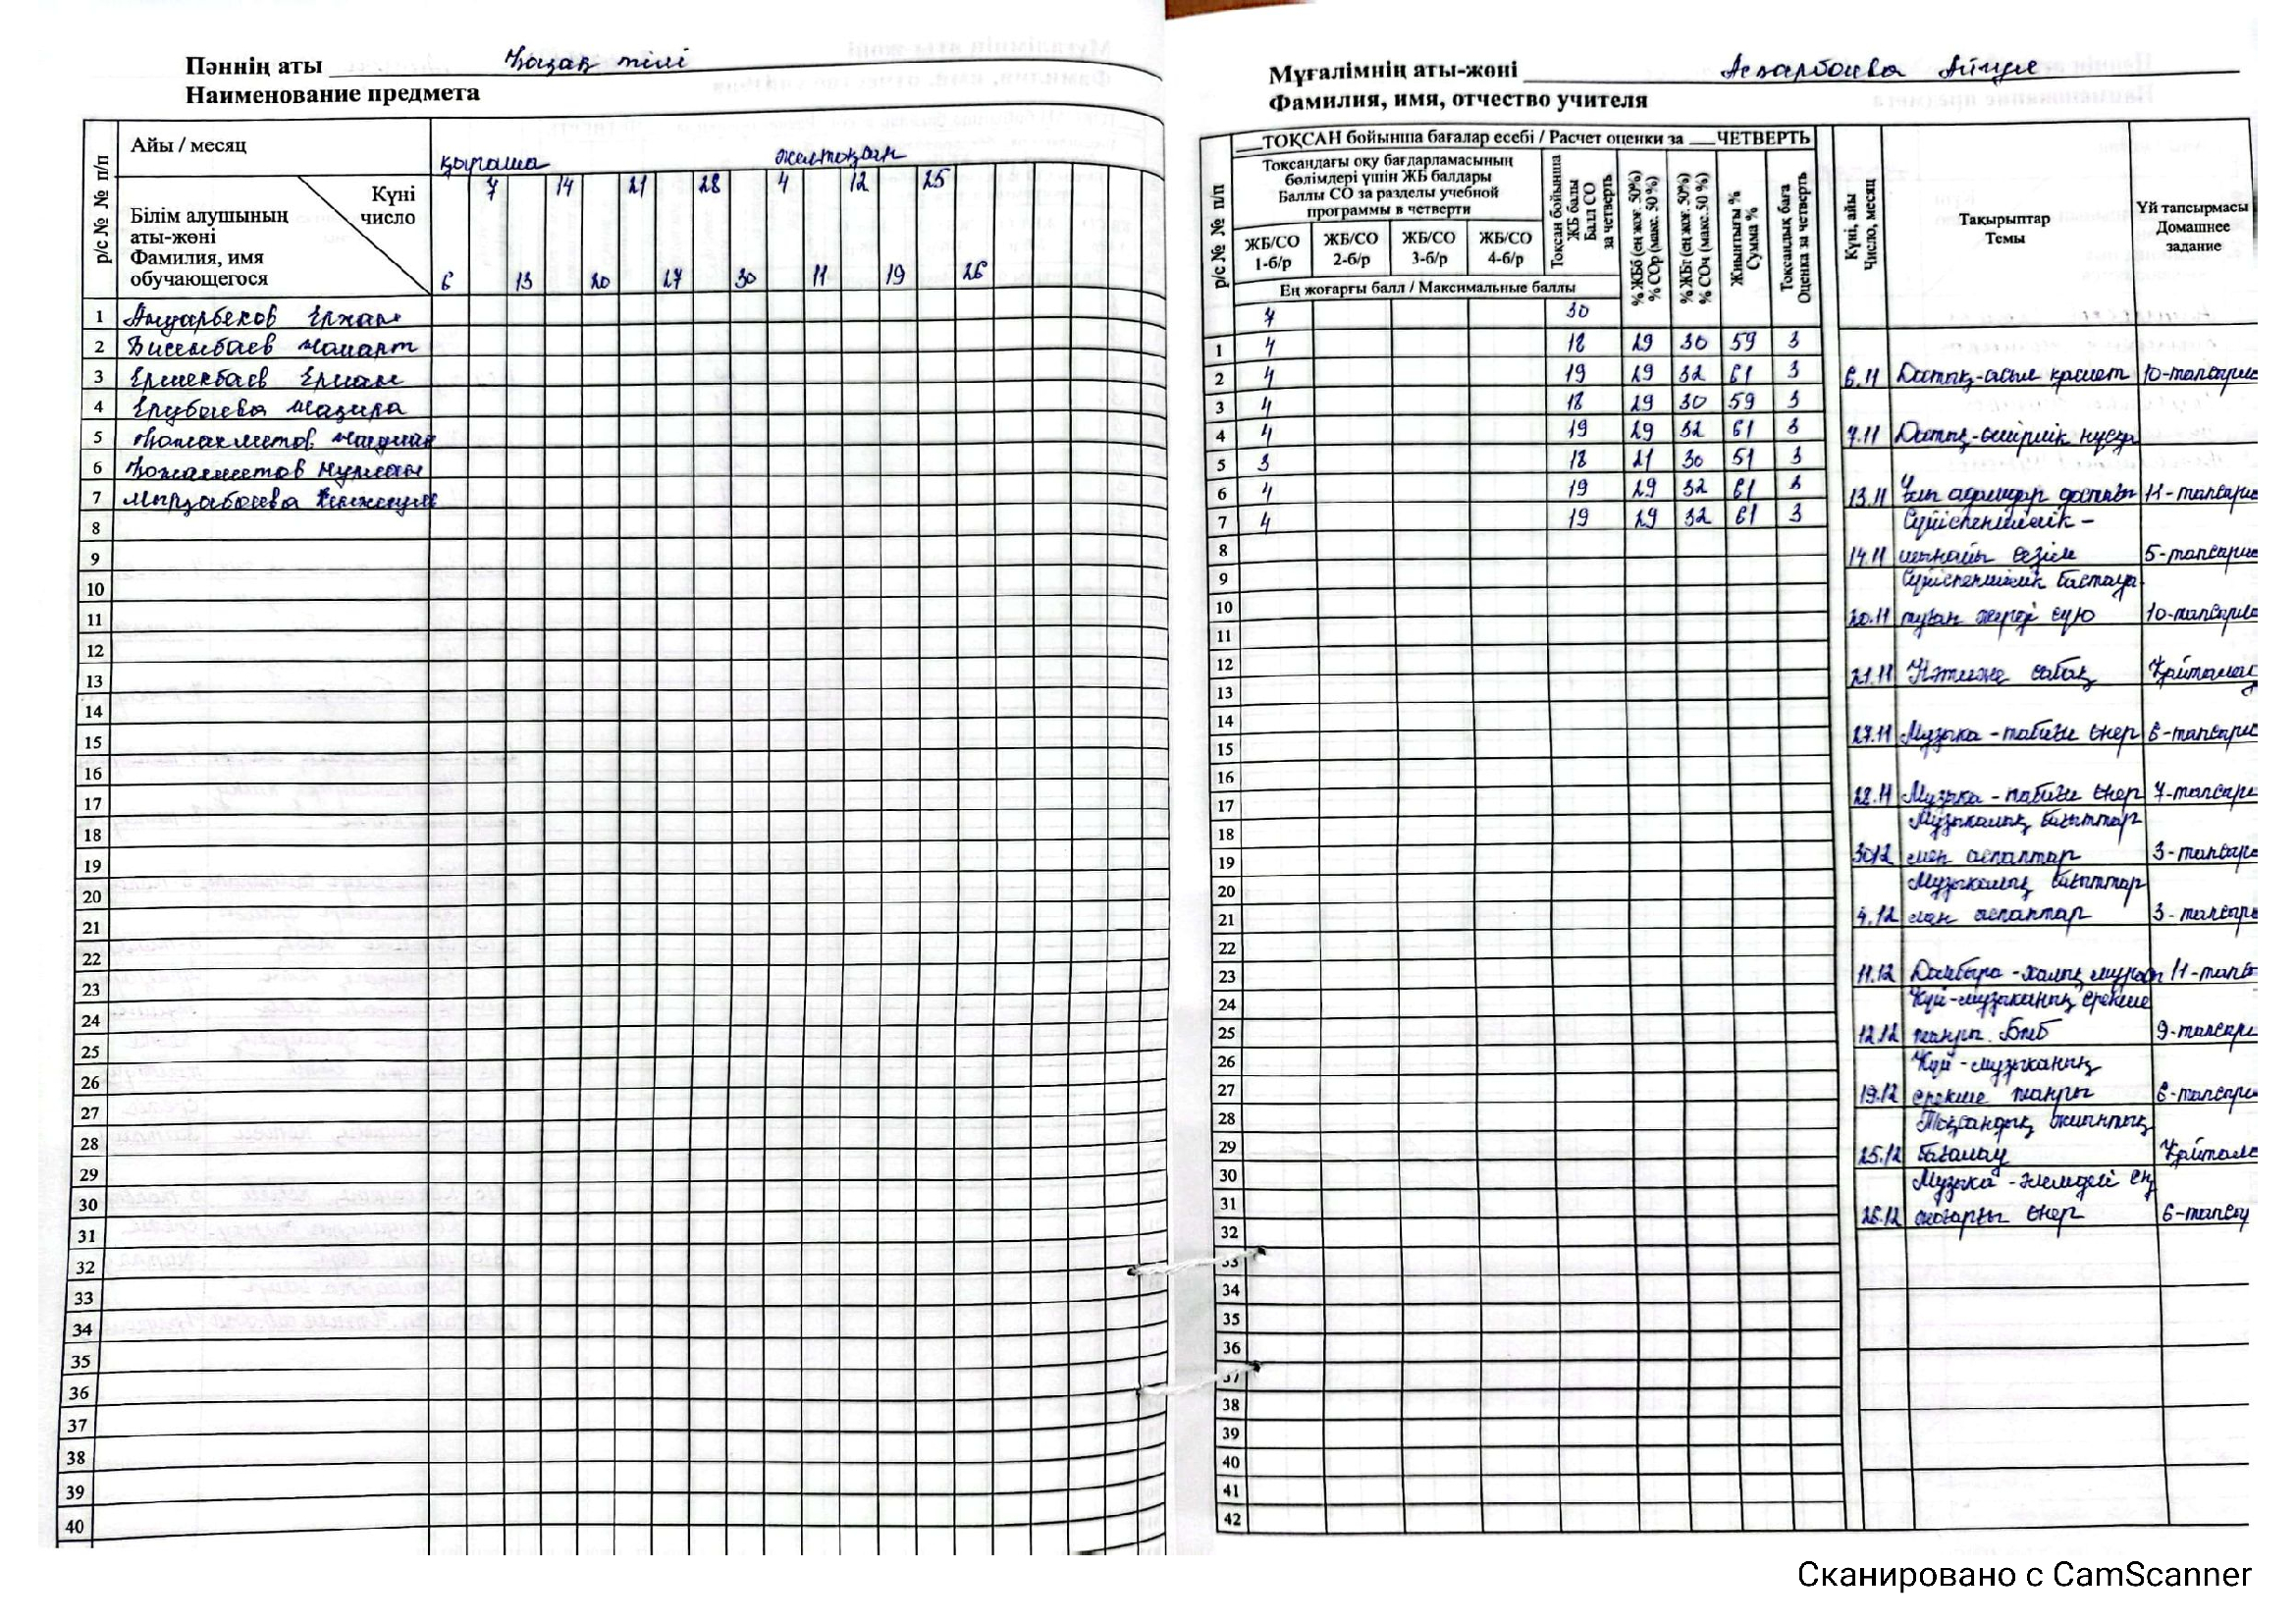 Пәннің аты Қазақ тілі
Наименование предмета
р/с № № п/п
Айы / месяц
қараша желтоқсан
Күні
число
Білім алушының
аты-жөні
Фамилия, имя
обучающегося
7 14 21 28 4 12 25
6 13 20 27 30 11 19 26
1 Ануарбеков Ержан
2 Бисембаев Жомарт
3 Ермекбаев Ернан
4 Ерубаева Назира
5 Қожахметов
6 Қожахметов Нұржан
7 Мырзабаева
8
9
10
11
12
13
14
15
16
17
18
19
20
21
22
23
24
25
26
27
28
29
30
31
32
33
34
35
36
37
38
39
40
Мұғалімнің аты-жөні Айнұр
Фамилия, имя, отчество учителя
р/с № № п/п
__ТОҚСАН бойынша бағалар есебі / Расчет оценки за __ЧЕТВЕРТЬ
Тоқсандағы оқу бағдарламасының
бөлімдері үшін ЖБ балдары
Баллы СО за разделы учебной
программы в четверти
ЖБ/СО 1-б/р
ЖБ/СО 2-б/р
ЖБ/СО 3-б/р
ЖБ/СО 4-б/р
Тоқсан бойынша
ЖБ балы
Балл СО
за четверть
% ЖБб (ең жоғ. 50%)
% СОр (макс. 50%)
% ЖБт (ең жоғ. 50%)
% СОч (макс. 50 %)
Жиынтығы %
Сумма %
Тоқсандық баға
Оценка за четверть
Ең жоғарғы балл / Максимальные баллы
7 30
1 4 18 29 30 59 3
2 4 19 29 32 61 3
3 4 18 29 30 59 3
4 4 19 29 32 61 3
5 3 18 21 30 51 3
6 4 19 29 32 61 3
7 4 19 29 32 61 3
8
9
10
11
12
13
14
15
16
17
18
19
20
21
22
23
24
25
26
27
28
29
30
31
32
33
34
35
36
37
38
39
40
41
42
Күні, айы
Число, месяц
Тақырыптар
Темы
Үй тапсырмасы
Домашнее
задание
6.11 Достық-асыл қасиет 10-тапсырма
7.11 Достық-өмірлік
13.11 адамдар достығы 11-тапсырма
Сүйіспеншілік -
14.11 шынайы сезім 5-тапсырма
Сүйіспеншілік бастауы
20.11 туған жерді сүю 10-тапсырма
21.11 Нәтиже сабақ Қайталау
27.11 Музыка - табиғи өнер 6-тапсырма
28.11 Музыка - табиғи өнер 7-тапсырма
Музыкалық бағыттар
30.12 мен аспаптар 3-тапсырма
Музыкалық бағыттар
4.12 мен аспаптар 3-тапсырма
11.12 Домбыра - халық мұрасы 11-тапсы
Күй-музыканың ерекше
12.12 жанры. БЖБ 9-тапсырма
Күй-музыканың
19.12 ерекше жанры 6-тапсырма
Тоқсандық жиынтық
25.12 бағалау Қайталау
Музыка - әлемдегі ең
26.12 жоғарғы өнер 6-тапсы
Сканировано с CamScanner